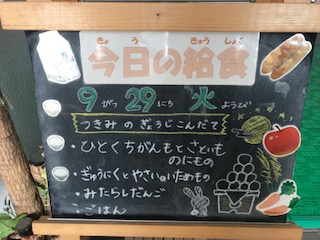 きょう きゅうしょく
今日の給食
9がつ 29にち 火ようび
つきみ の ぎょうじこんだて
・ひとくちがんもとさといも
のにもの
・ぎゅうにくとやさいのいためもの
・みたらしだんご
・ごはん